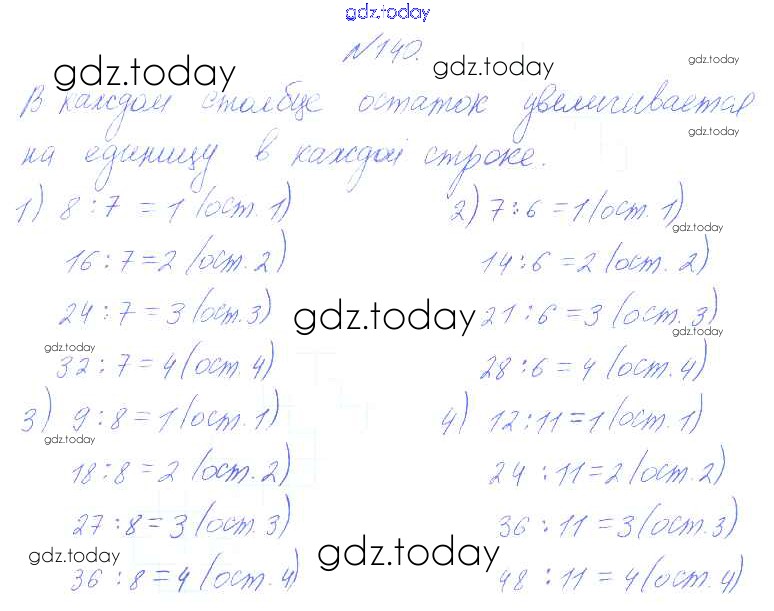 gdz.today
№140.
gdz.today gdz.today gdz.today
В каждом столбце остаток увеличивается
gdz.today
на единицу в каждой строке.
1) 8 : 7 = 1 (ост. 1) 2) 7 : 6 = 1 (ост. 1)
gdz.today
16 : 7 = 2 (ост. 2) 14 : 6 = 2 (ост. 2)
24 : 7 = 3 (ост. 3) gdz.today 21 : 6 = 3 (ост. 3)
gdz.today gdz.today
32 : 7 = 4 (ост. 4) 28 : 6 = 4 (ост. 4)
3) 9 : 8 = 1 (ост. 1) 4) 12 : 11 = 1 (ост. 1)
gdz.today
18 : 8 = 2 (ост. 2) 24 : 11 = 2 (ост. 2)
27 : 8 = 3 (ост. 3) 36 : 11 = 3 (ост. 3)
gdz.today gdz.today
36 : 8 = 4 (ост. 4) 48 : 11 = 4 (ост. 4)